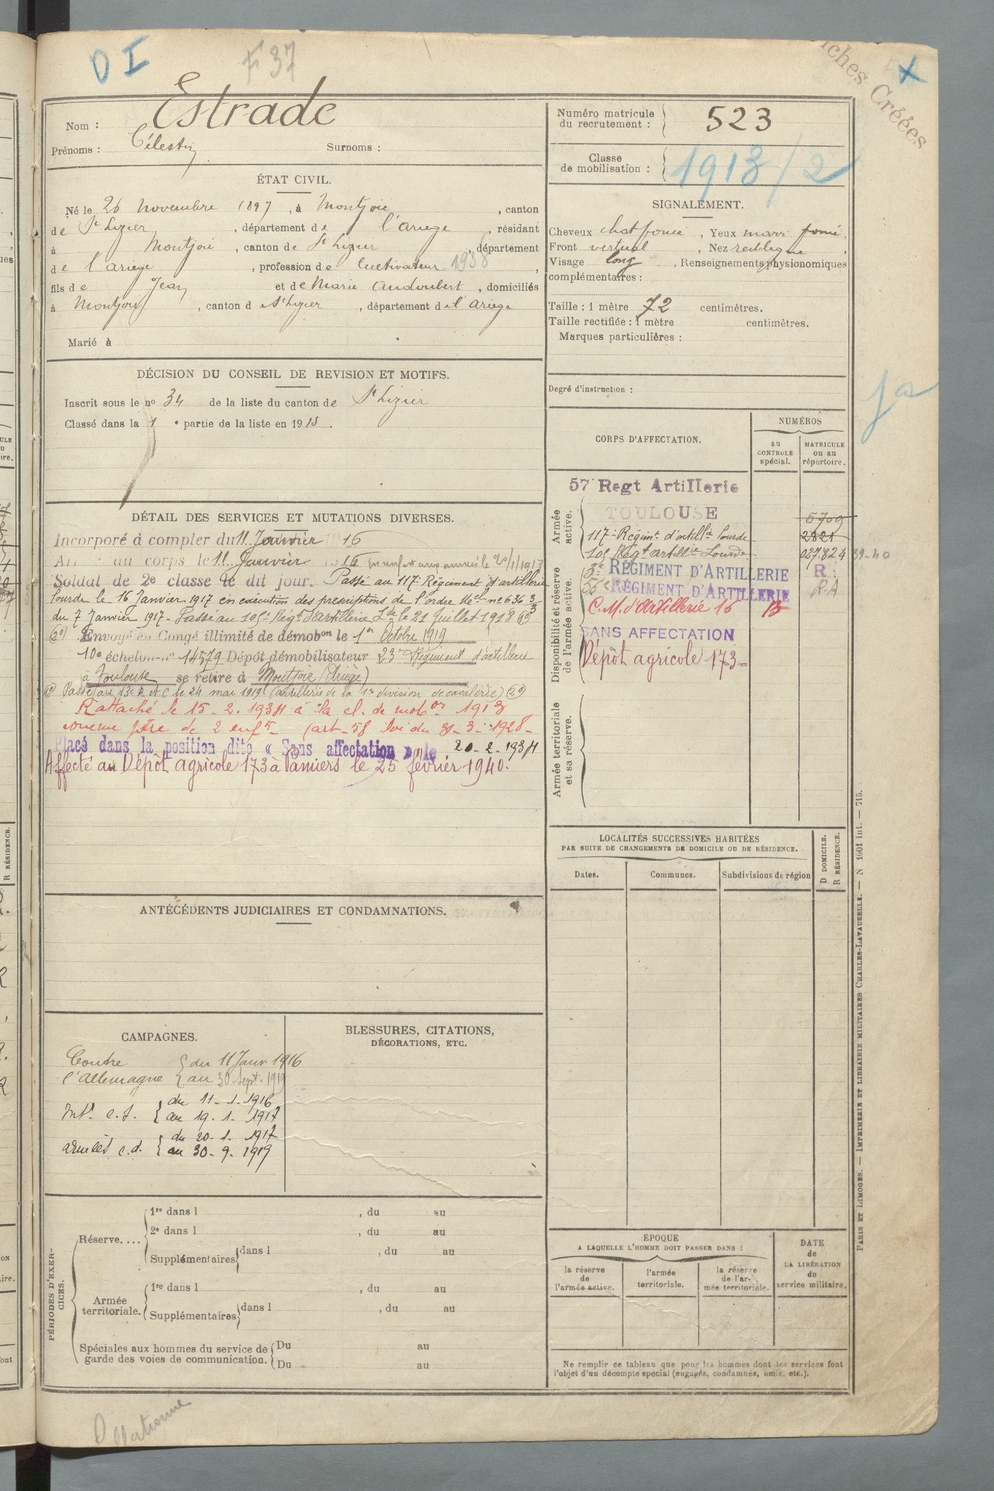 D I
F 37
Fiches Créées
X
Nom : Estrade
Prénoms : Célestin Surnoms :
Numéro matricule du recrutement : 523
Classe de mobilisation : 1913/2
ÉTAT CIVIL.
Né le 26 Novembre 1897, à Montjoie, canton
de St Lizier, département de l'ariege, résidant
à Montjoie, canton de St Lizier, département
de l'ariege, profession de Cultivateur 1938
fils de Jean et de Marie Audoubert, domiciliés
à Montjoie, canton de St Lizier, département de l'Ariege
Marié à
SIGNALEMENT.
Cheveux chat foncé, Yeux marr foncé,
Front vertical, Nez rectiligne
Visage long, Renseignements physionomiques
complémentaires :
Taille : 1 mètre 72 centimètres.
Taille rectifiée : 1 mètre centimètres.
Marques particulières :
Degré d'instruction :
DÉCISION DU CONSEIL DE REVISION ET MOTIFS.
Inscrit sous le no 34 de la liste du canton de St Lizier
Classé dans la 1e partie de la liste en 1915.
DÉTAIL DES SERVICES ET MUTATIONS DIVERSES.
Incorporé à compter du 11 Janvier 1916
Arrivé au corps le 11 Janvier 1916 renfort aux armées le 20/1/1917
Soldat de 2e classe le dit jour. Passé au 117e Régiment d'artillerie
lourde le 16 Janvier 1917 en exécution des prescriptions de l'ordre
du 7 Janvier 1917. Passé au Régt d'artillerie Lde le 21 Juillet 1918
Envoyé en Congé illimité de démobon le 1er Octobre 1919
10e échelon no 14579 Dépôt démobilisateur 23me Régiment d'artillerie
à Toulouse se retire à Montjoie (Ariège)
Passé le 24 mai 1919 (artillerie de la 1re division de cavalerie)
Rattaché le 15-2-1934 à la cl. de mobon 1913
comme père de 2 enfts (art. 58 loi du 31-3-1928-
Placé dans la position dite « Sans affectation » le 20-2-1934
Affecté au Dépôt agricole 173 à Pamiers le 25 février 1940.
CORPS D'AFFECTATION.
NUMÉROS
AU CONTROLE spécial.
MATRICULE OU AU répertoire.
Armée active.
57e Regt Artillerie
TOULOUSE
117e Régimt d'artillie lourde
Régt artillie Lourde
5709
2821
39-40
Disponibilité et réserve de l'armée active.
3e RÉGIMENT D'ARTILLERIE R
RÉGIMENT D'ARTILLERIE R.A
C.M. d'Artillerie 16
SANS AFFECTATION
Dépôt agricole 173-
Armée territoriale et sa réserve.
LOCALITÉS SUCCESSIVES HABITÉES
PAR SUITE DE CHANGEMENTS DE DOMICILE OU DE RÉSIDENCE.
Dates. Communes. Subdivisions de région
D DOMICILE.
R RÉSIDENCE.
ANTÉCÉDENTS JUDICIAIRES ET CONDAMNATIONS.
CAMPAGNES.
Contre l'Allemagne { du 11 Janv 1916
au 30 Sept. 1919
Intr. c.s. { du 11-1-1916
au 19-1-1917
armées c.d. { du 20-1-1917
au 30-9-1919
BLESSURES, CITATIONS,
DÉCORATIONS, ETC.
PÉRIODES D'EXERCICES.
Réserve....
1re dans l , du au
2e dans l , du au
Supplémentaires dans l , du au
Armée territoriale.
1re dans l , du au
Supplémentaires dans l , du au
Spéciales aux hommes du service de garde des voies de communication.
Du au
Du au
ÉPOQUE
A LAQUELLE L'HOMME DOIT PASSER DANS :
la réserve de l'armée active.
l'armée territoriale.
la réserve de l'armée territoriale.
DATE de LA LIBÉRATION du service militaire.
Ne remplir ce tableau que pour les hommes dont les services font
l'objet d'un décompte spécial (engagés, condamnés, omis, etc.).
PARIS ET LIMOGES. — IMPRIMERIE ET LIBRAIRIE MILITAIRES CHARLES-LAVAUZELLE. — N 1001 Int. — 715.